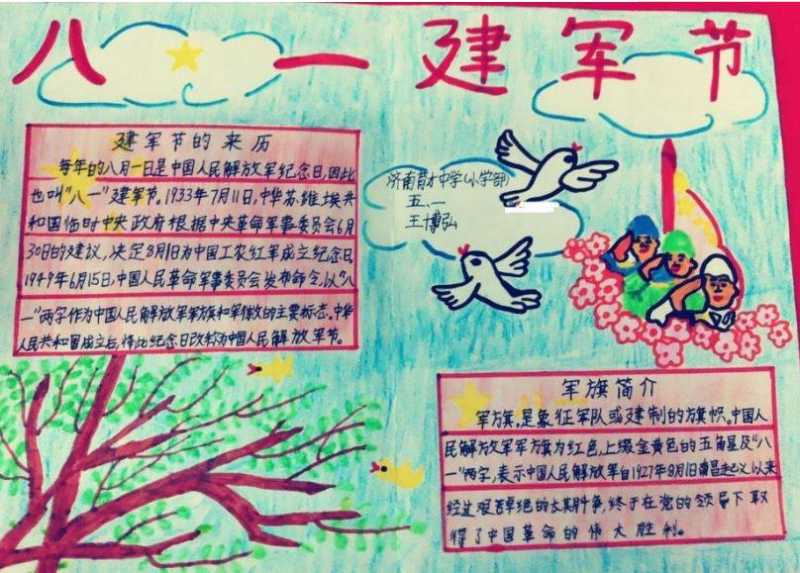 八一建军节
建军节的来历
每年的八月一日是中国人民解放军纪念日,因此
也叫"八一"建军节。1933年7月11日,中华苏维埃共
和国临时中央政府根据中央革命军事委员会6月
30日的建议,决定8月1日为中国工农红军成立纪念日
1949年6月15日,中国人民革命军事委员会发布命令,以"八
一"两字作为中国人民解放军军旗和军徽的主要标志。中华
人民共和国成立后,将此纪念日改称为中国人民解放军节。
济南育才中学(小学部)
五、一
王博弘
军旗简介
军旗,是象征军队或建制的旗帜。中国人
民解放军军旗为红色,上缀金黄色的五角星及"八
一"两字,表示中国人民解放军自1927年8月1日南昌起义以来
经过艰苦卓绝的长期斗争,终于在党的领导下取
得了中国革命的伟大胜利。